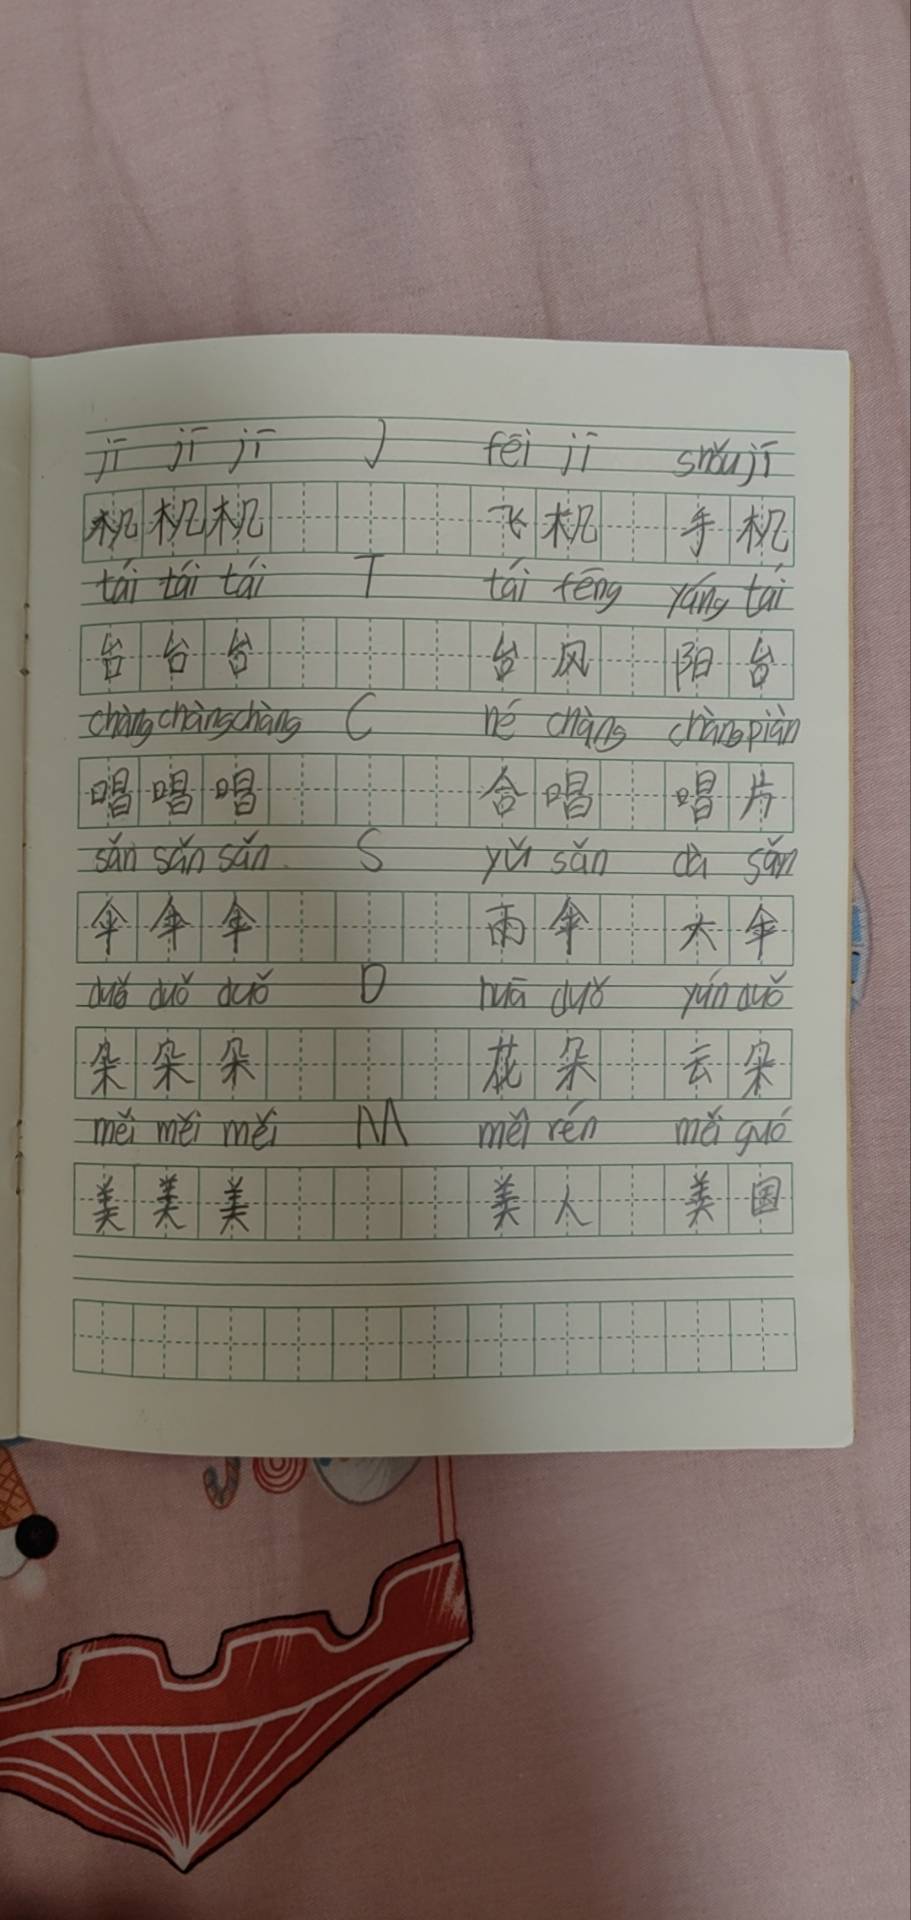 jī jī jī J fēi jī shǒu jī
机 机 机 飞 机 手 机
tái tái tái T tái fēng yáng tái
台 台 台 台 风 阳 台
chàng chàng chàng C hé chàng chàng piàn
唱 唱 唱 合 唱 唱 片
sǎn sǎn sǎn S yǔ sǎn dà sǎn
伞 伞 伞 雨 伞 大 伞
duǒ duǒ duǒ D huā duǒ yún duǒ
朵 朵 朵 花 朵 云 朵
měi měi měi M měi rén měi guó
美 美 美 美 人 美 国